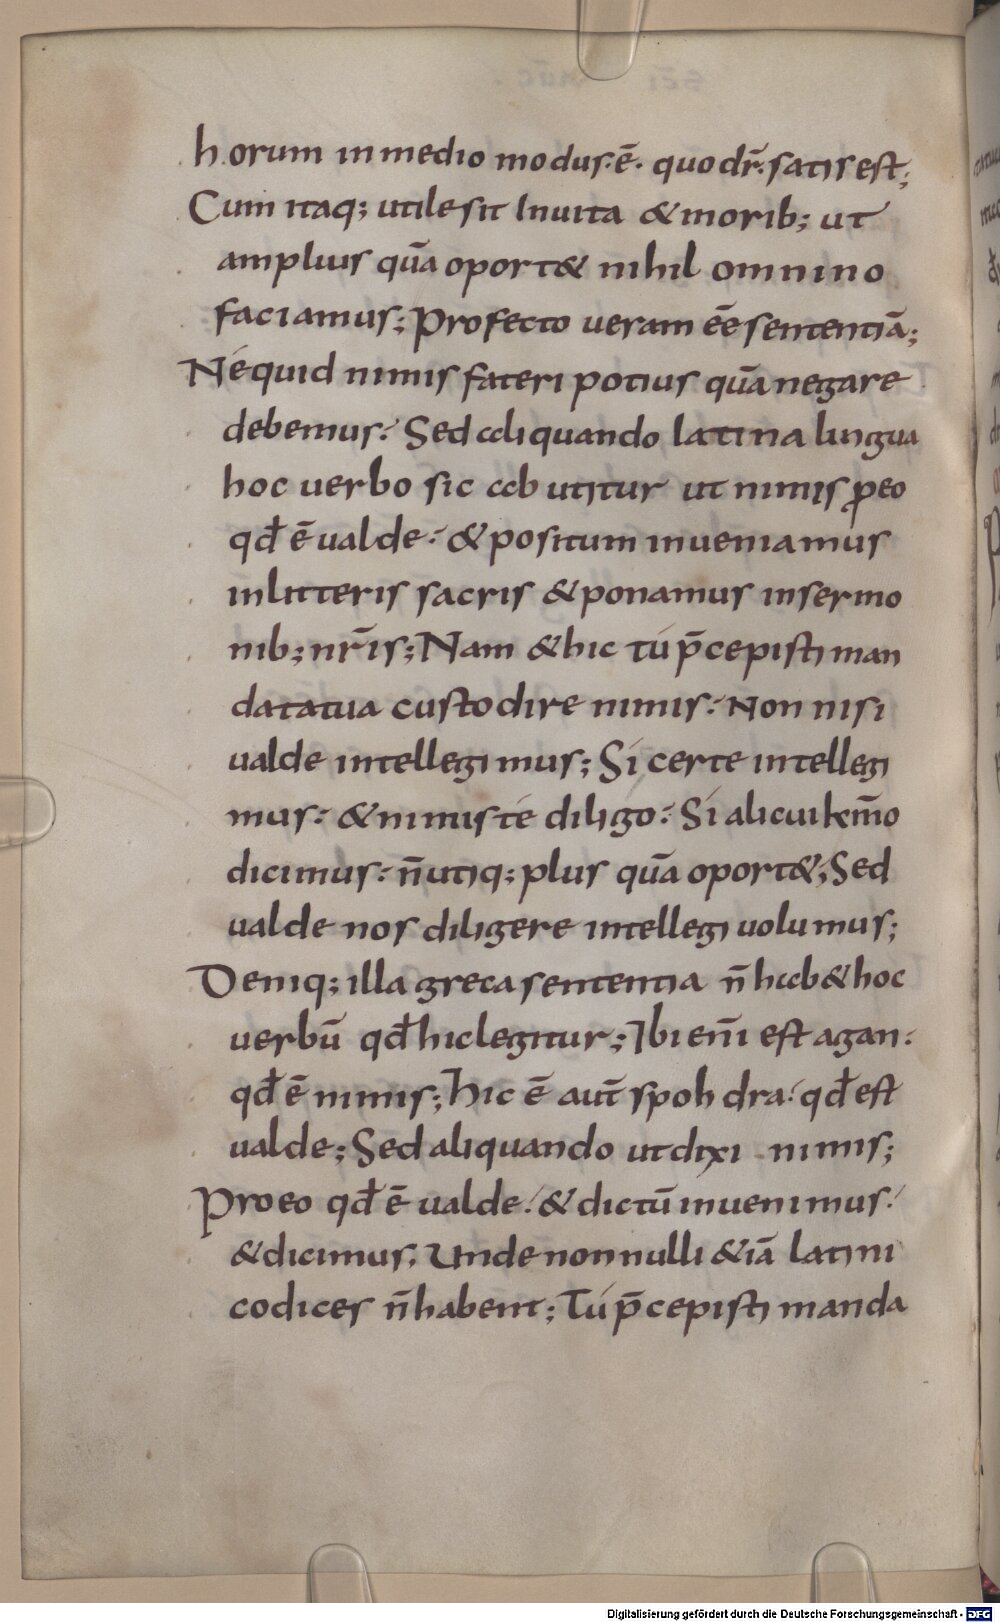 horum in medio modus·ē· quo dr̄·satis est;
Cum itaq; utile sit Inuita & morib; ut
amplius quā oport& nihil omnino
faciamus; Profecto ueram eē sententiā;
Né quid nimis fateri potius quā negare
debemus· Sed aliquando latina lingua
hoc uerbo sic ab utitur ut nimis ꝓ eo
qđ ē ualde· & positum inueniamus
in litteris sacris & ponamus in sermo
nib; nr̄is; Nam & hic tú p̄cepisti man
data tua custodire nimis· Non nisi
ualde intellegimus; Sí certe intellegi
mus· & nimis té diligo· Sí alicui kmō
dicimus· n̄ utiq; plus quā oport&; Sed
ualde nos diligere intellegi uolumus;
Deniq; illa greca sententia n̄ hab& hoc
uerbū qđ hic legitur; Ibi eni̅ est agan·
qđ ē nimis; Hic ē aut̄ spoh dra· qđ est
ualde; Sed aliquando ut dixi nimis;
Pro eo qđ ē ualde· & dictū inuenimus·
& dicimus, Unde non nulli &iā latini
codices n̄ habent; Tú p̄cepisti manda
Digitalisierung gefördert durch die Deutsche Forschungsgemeinschaft - DFG